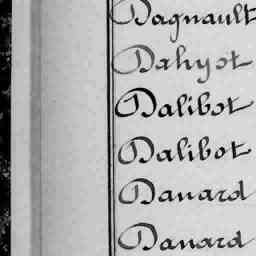 Dagnault
Dahyot
Dalibot
Dalibot
Danard
Danard